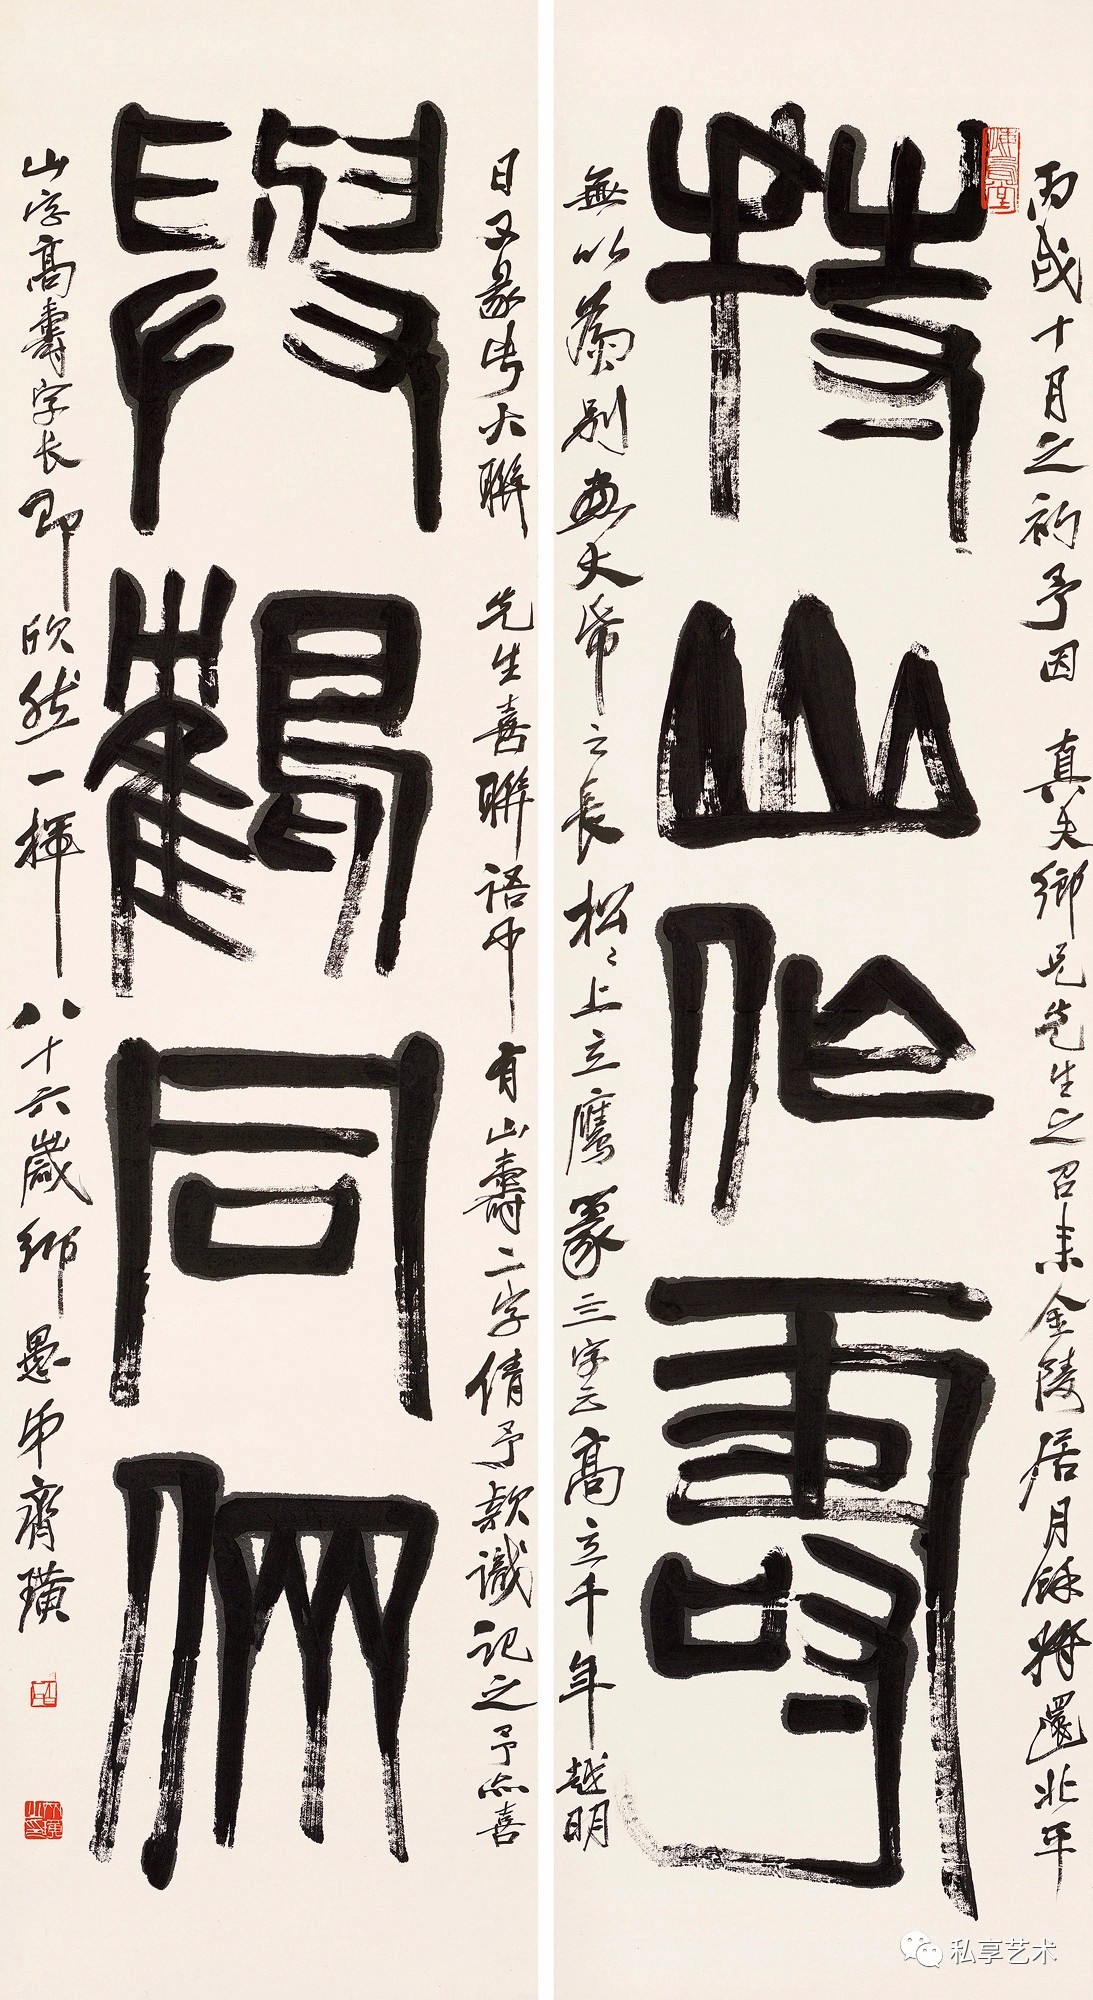 持山作壽
丙戌十月之初予因 真夫鄉兄先生之召來金陵居月餘將還北平
無以爲別畫大幅之長松松上立鷹篆三字云高立千年越明
與鶴同儕
日又篆此大聯 先生喜聯語中有山壽二字倩予款識記之予亦喜
山字高壽字長即欣然一揮 八十六歲鄉愚弟齊璜
私享艺术